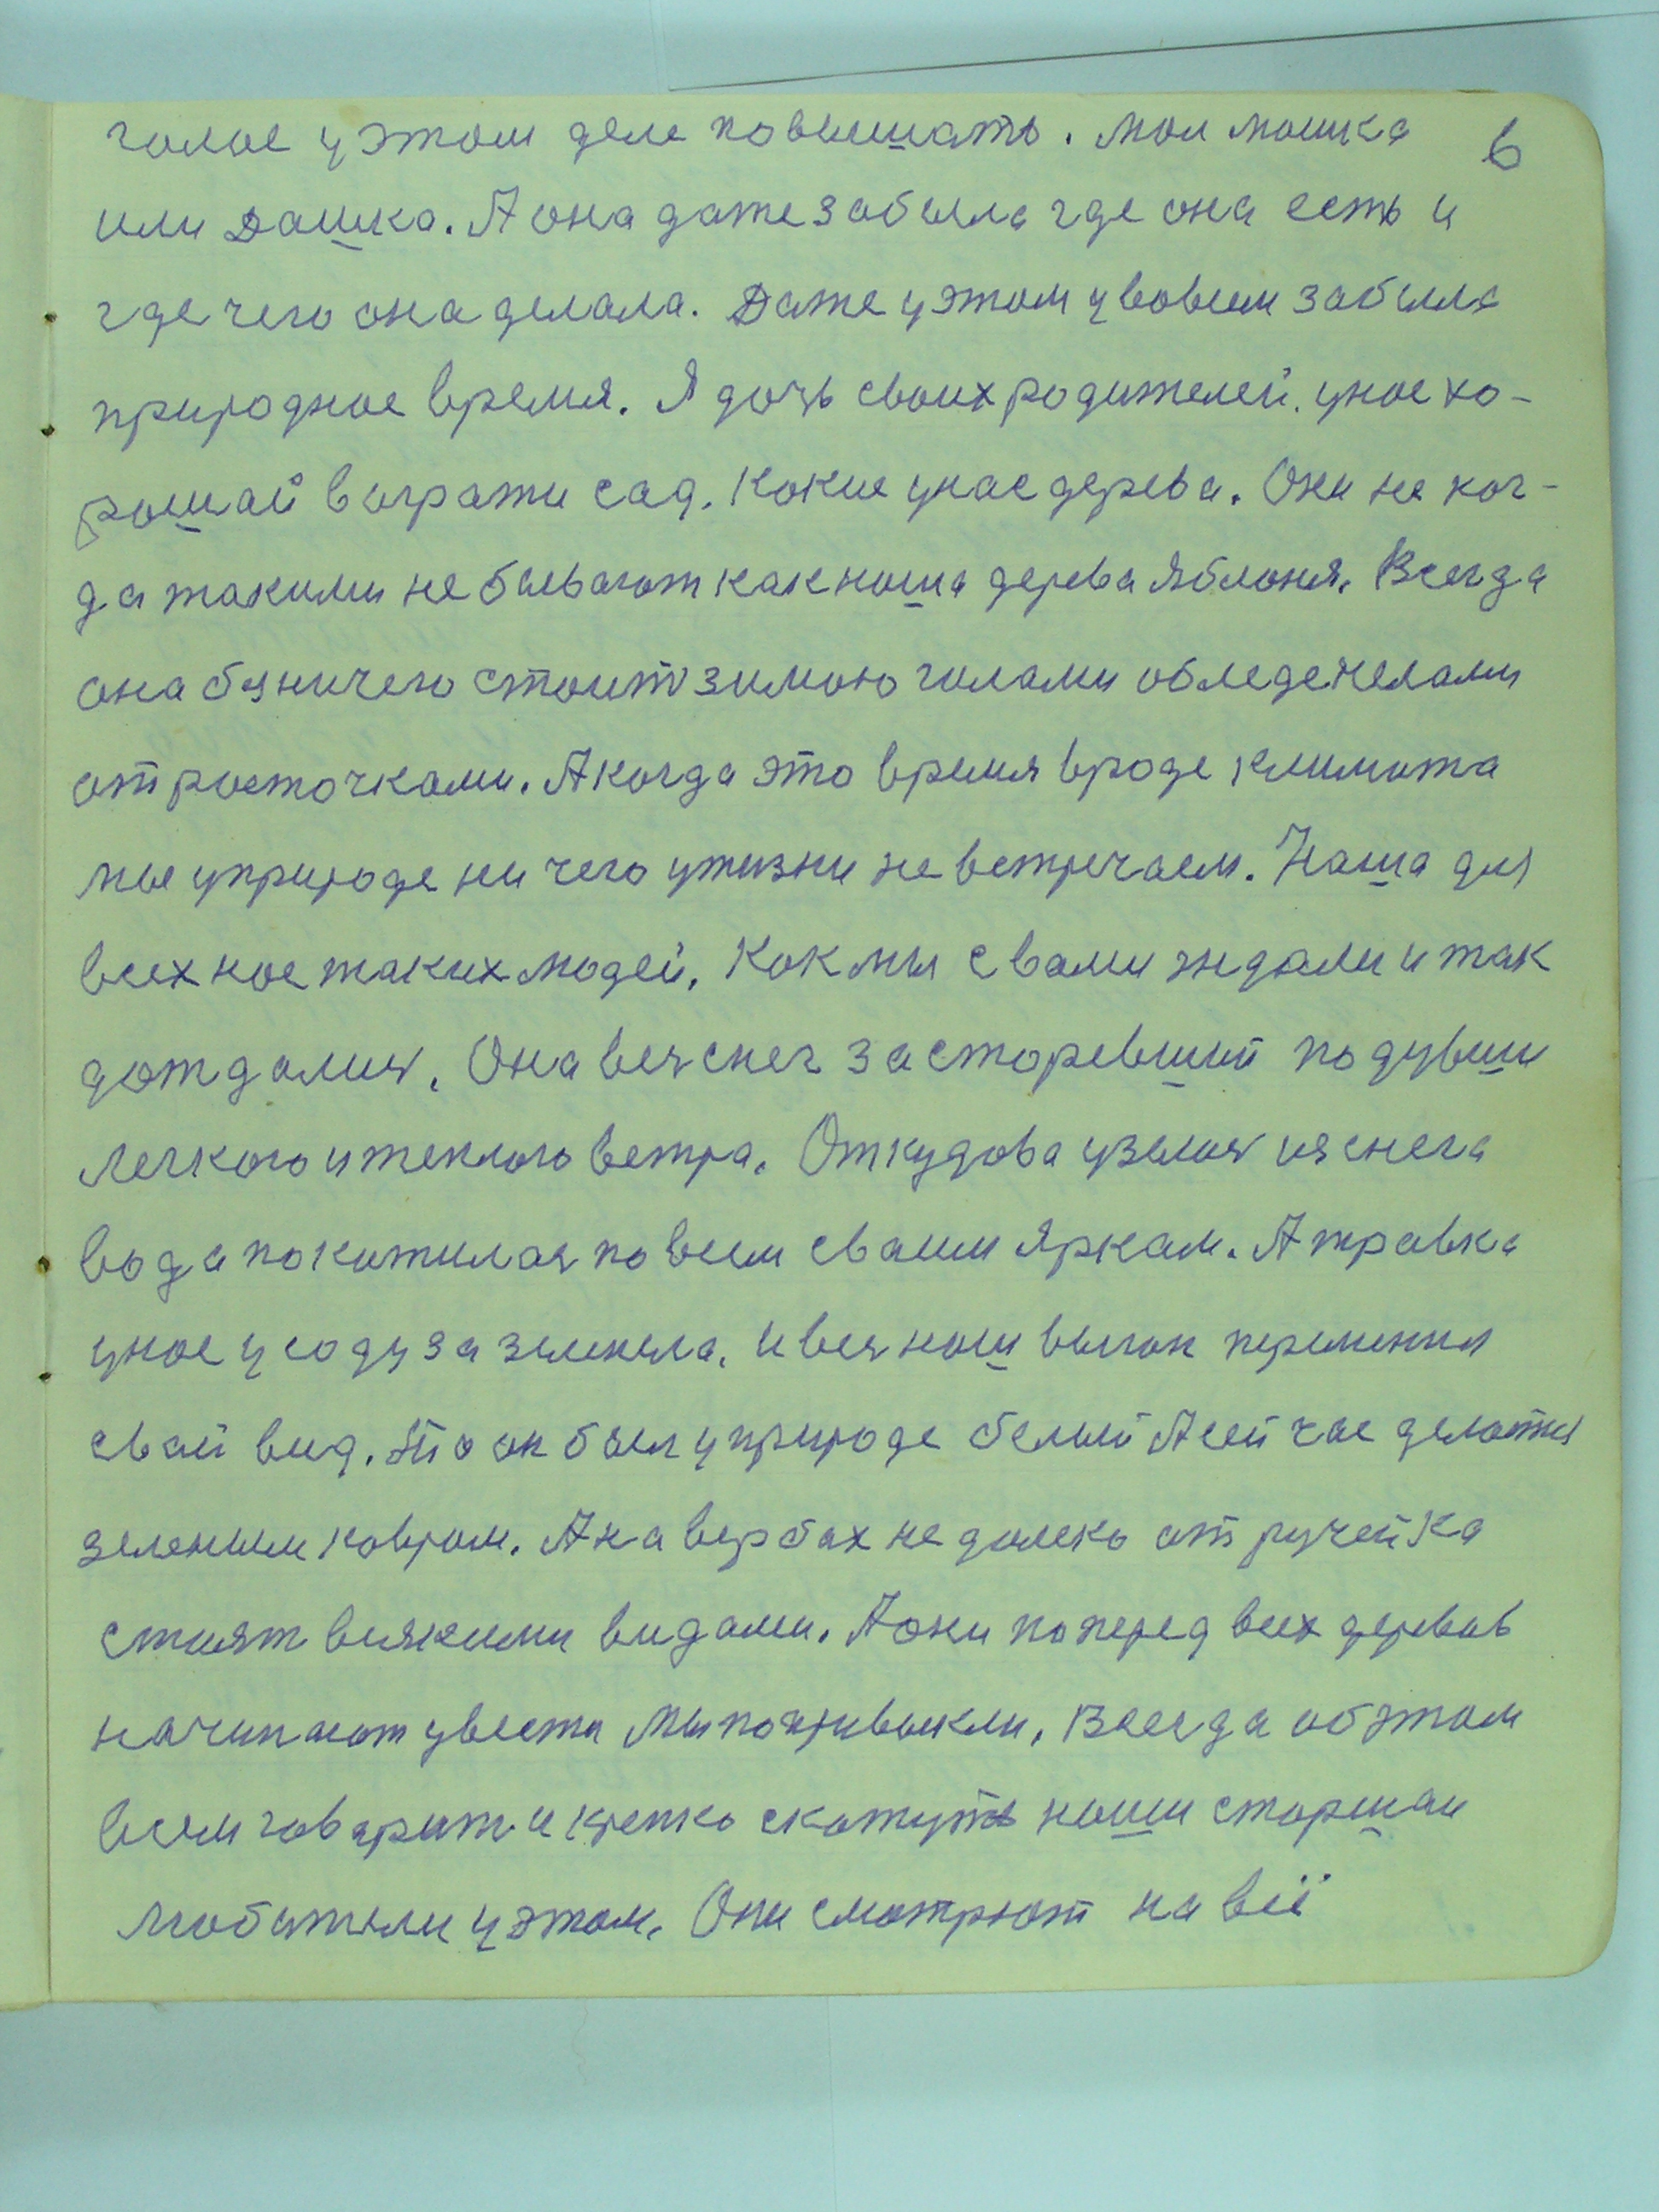 голос у этом деле повышать. мол машка 6
или Дашка. А она даже забыла где она есть и
где чего она делала. Даже у этом у вовсем забыла
природное время. Я дочь своих родителей. у нас хо-
роший в играти сад. Кокие у нас дерева. Они не ког-
да такими не бывают как наша дерева яблоня. Всегда
она без ничего стоит зимою голами обледенелами
отросточками. А когда это время вроде климата
мы у природе ни чего у жизни не встречаем. Наша для
всех нас таких людей. Как мы с вами ждали и так
дождались. Она весь снег засторевший подувши
легкого и теплого ветра. Откудова узялась из снега
вода покатилась по всем своим яркам. А травка
у нас у саду за зеленела. И весь наш выгон переменил
свой вид. То он был у природе белый А сей час делатся
зеленым ковром. А на вербах не далеко от ручейка
стоят всякими видами. А они поперед всех деревов
начинают цвести мы попривыкли. Всегда об этом
всем говарит и крепко скажуть наши старшаи
любители у этом. Они смотрют на всё